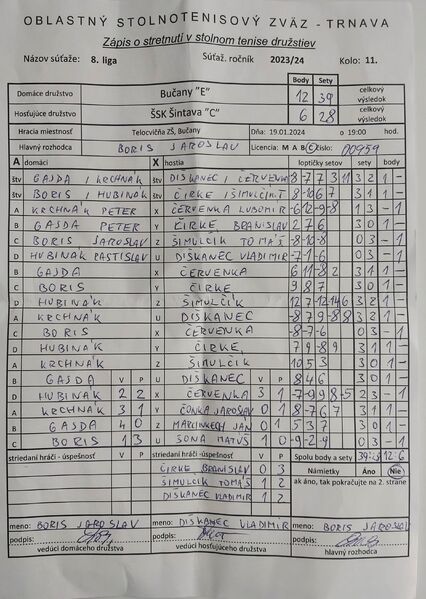 OBLASTNÝ STOLNOTENISOVÝ ZVÄZ - TRNAVA
Zápis o stretnutí v stolnom tenise družstiev
Názov súťaže: 8. liga Súťaž. ročník 2023/24 Kolo: 11.
Body Sety
Domáce družstvo Bučany "E" 12 39 celkový výsledok
Hosťujúce družstvo ŠSK Šintava "C" 6 28 celkový výsledok
Hracia miestnosť Telocvičňa ZŠ, Bučany Dňa: 19.01.2024 o 19:00 hod.
Hlavný rozhodca BORIS JAROSLAV Licencia: M A B C číslo: 00959
A domáci X hostia loptičky setov sety body
štv GAJDA / KRCHNÁK štv DISKANEC / ČERVENKA 3 1 1 -
štv BORIS / HUBINÁK štv ČIRKE / ŠIMULČÍK T 8 -10 6 7 3 1 1 -
A KRCHNÁK PETER X ČERVENKA ĽUBOMÍR -6 12 -9 -8 1 3 - 1
B GAJDA PETER Y ČIRKE BRANISLAV 2 7 6 3 0 1 -
C BORIS JAROSLAV Z ŠIMULČÍK TOMÁŠ -8 -10 -8 0 3 - 1
D HUBINÁK RASTISLAV U DISKANEC VLADIMÍR -7 -1 -6 0 3 - 1
B GAJDA X ČERVENKA 6 11 -8 2 3 1 1 -
C BORIS Y ČIRKE 9 8 7 3 0 1 -
D HUBINÁK Z ŠIMULČÍK 12 7 -12 -14 6 3 2 1 -
A KRCHNÁK U DISKANEC -8 7 9 -8 8 3 2 1 -
C BORIS X ČERVENKA -8 -7 -6 0 3 - 1
D HUBINÁK Y ČIRKE 7 9 -8 9 3 1 1 -
A KRCHNÁK Z ŠIMULČÍK 10 5 3 3 0 1 -
B GAJDA V P U DISKANEC V P 8 4 6 3 0 1 -
D HUBINÁK 2 2 X ČERVENKA 3 1 -7 -9 9 8 -5 2 3 - 1
A KRCHNÁK 3 1 Y ČONKA JAROSLAV 0 1 8 -7 6 7 3 1 1 -
B GAJDA 4 0 Z MARCINKECH JÁN 0 1 5 3 7 3 0 1 -
C BORIS 1 3 U SONA MATÚŠ 1 0 -9 -2 -9 0 3 - 1
striedaní hráči - úspešnosť V P striedaní hráči - úspešnosť V P Spolu body a sety 39:28 12:6
ČIRKE BRANISLAV 0 3 Námietky Áno Nie
ŠIMULČÍK TOMÁŠ 1 2 ak áno, tak pokračujte na 2. strane
DISKANEC VLADIMÍR 1 2
meno: BORIS JAROSLAV meno: DISKANEC VLADIMÍR meno: BORIS JAROSLAV
podpis: podpis: podpis:
vedúci domáceho družstva vedúci hosťujúceho družstva hlavný rozhodca